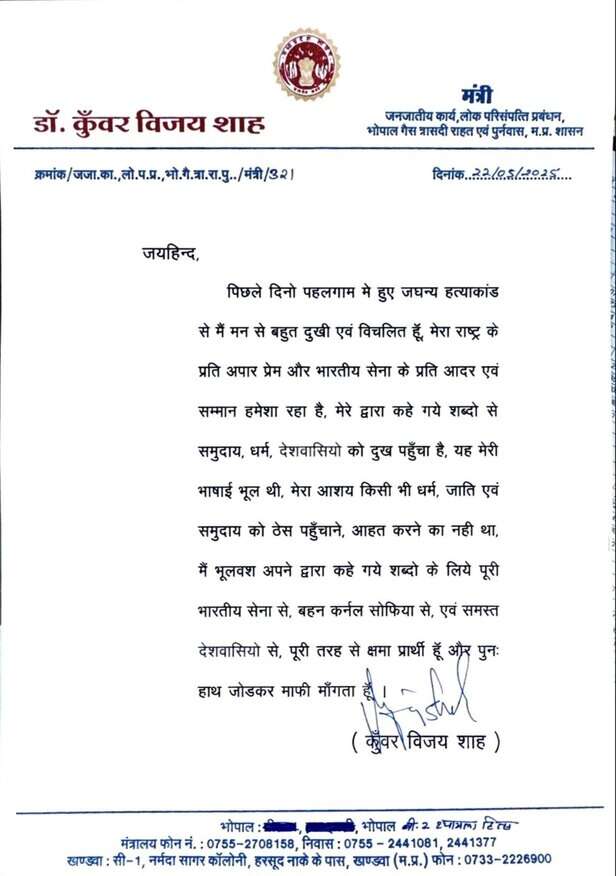 डॉ. कुँवर विजय शाह
मंत्री
जनजातीय कार्य,लोक परिसंपत्ति प्रबंधन,
भोपाल गैस त्रासदी राहत एवं पुर्नवास, म.प्र. शासन
क्रमांक/जजा.का.,लो.प.प्र.,भो.गै.त्रा.रा.पु../मंत्री/321
दिनांक..22/05/2025....
जयहिन्द,
पिछले दिनो पहलगाम मे हुए जघन्य हत्याकांड
से मैं मन से बहुत दुखी एवं विचलित हूँ, मेरा राष्ट्र के
प्रति अपार प्रेम और भारतीय सेना के प्रति आदर एवं
सम्मान हमेशा रहा है, मेरे द्वारा कहे गये शब्दो से
समुदाय, धर्म, देशवासियो को दुख पहुँचा है, यह मेरी
भाषाई भूल थी, मेरा आशय किसी भी धर्म, जाति एवं
समुदाय को ठेस पहुँचाने, आहत करने का नही था,
मैं भूलवश अपने द्वारा कहे गये शब्दो के लिये पूरी
भारतीय सेना से, बहन कर्नल सोफिया से, एवं समस्त
देशवासियो से, पूरी तरह से क्षमा प्रार्थी हूँ और पुनः
हाथ जोडकर माफी माँगता हूँ ।
( कुँवर विजय शाह )
भोपाल : भोपाल बी-2
मंत्रालय फोन नं. : 0755-2708158, निवास : 0755 - 2441081, 2441377
खण्डवा : सी-1, नर्मदा सागर कॉलोनी, हरसूद नाके के पास, खण्डवा (म.प्र.) फोन : 0733-2226900